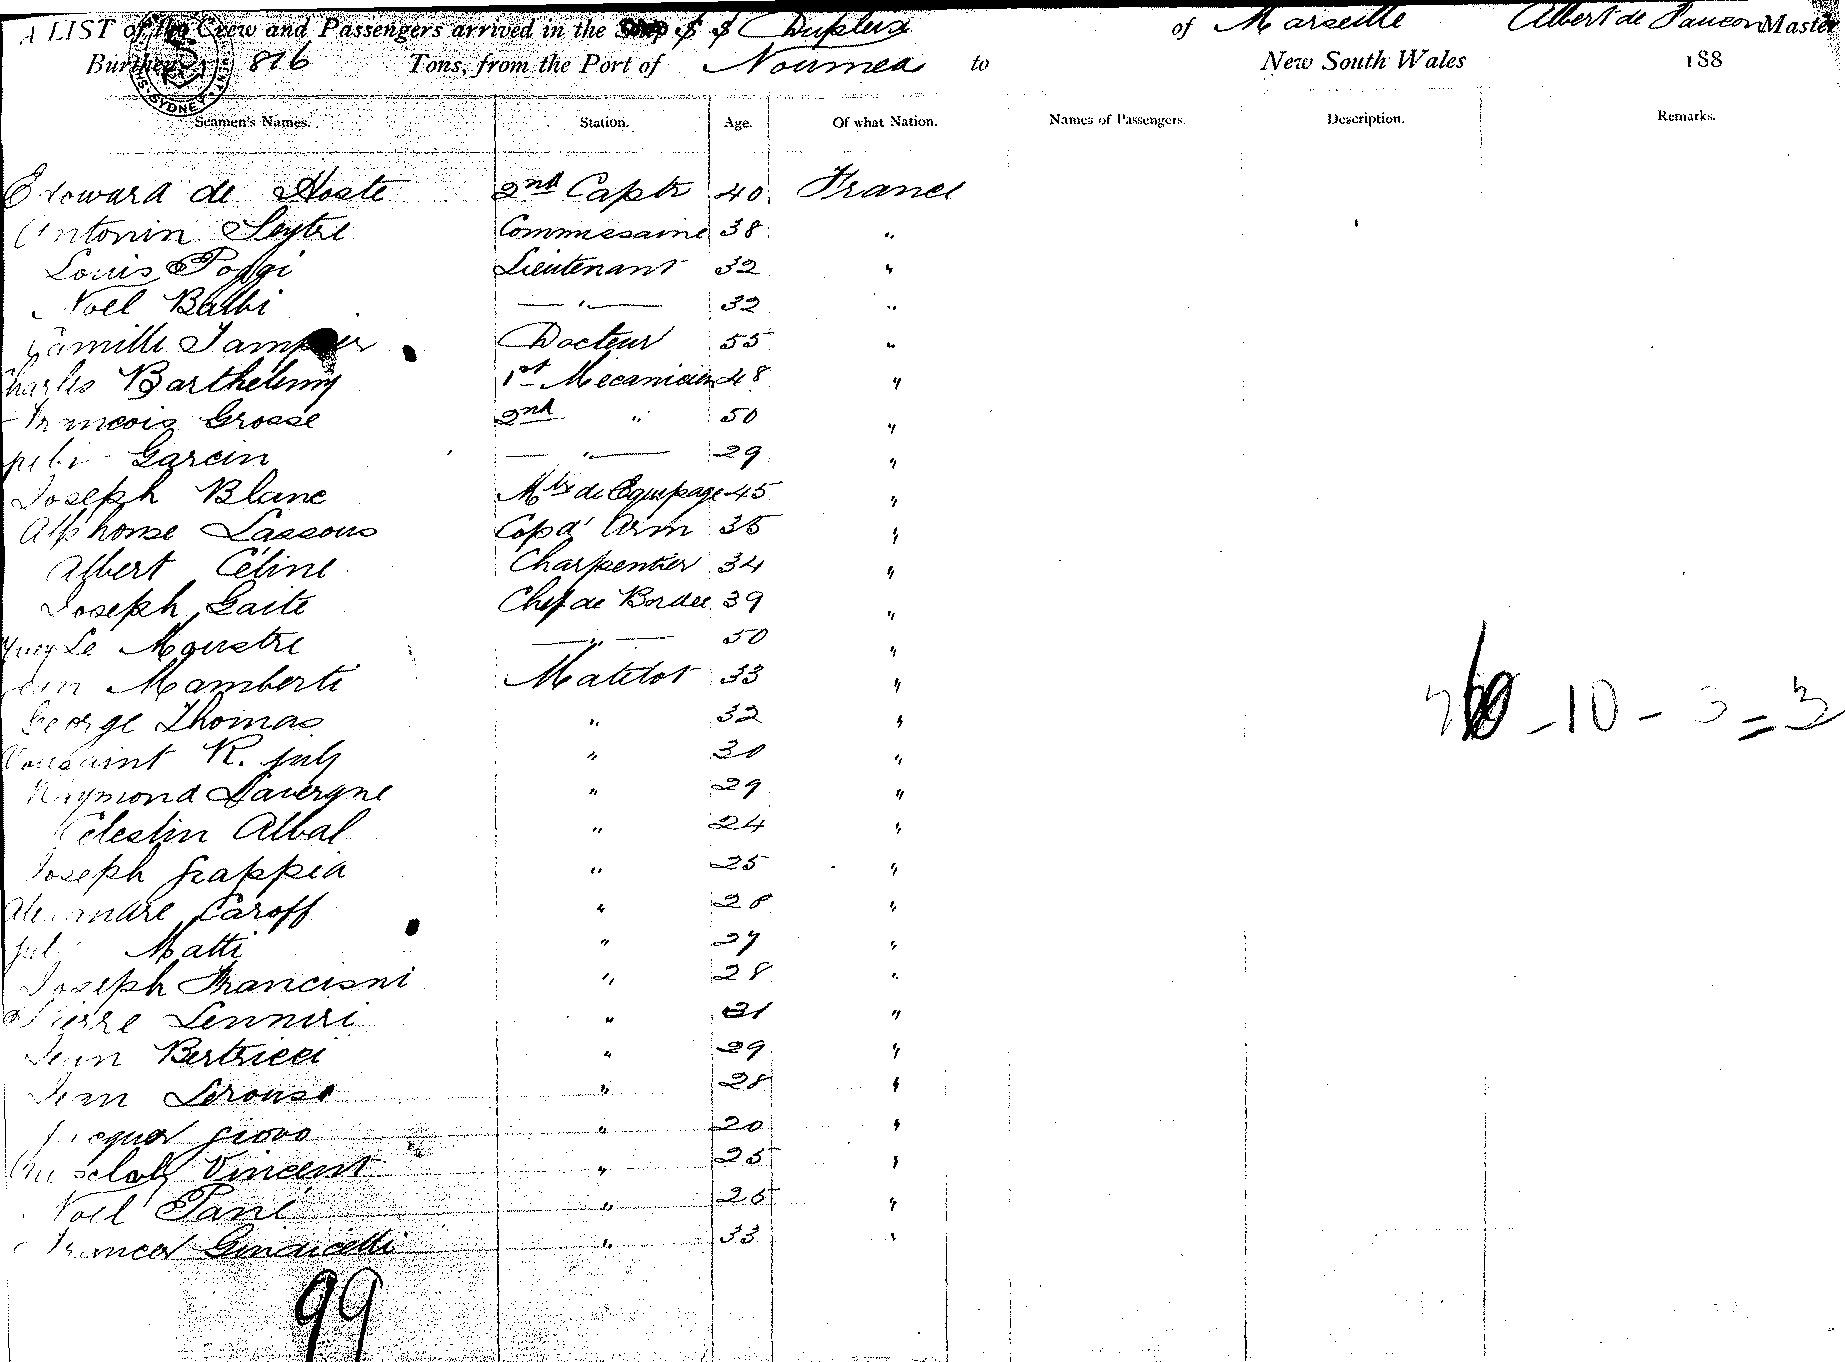 A LIST of the Crew and Passengers arrived in the Ship S S Dupleix of Marseille Albert de Faucon Master
Burthen 816 Tons, from the Port of Noumea to New South Wales 188
Seamen's Names. Station. Age. Of what Nation. Names of Passengers. Description. Remarks.
Edward de Hoste 2nd Captn 40 France
Antonin Seytre Commissaire 38 "
Louis Poggi Lieutenant 32 "
Noel Balbi — " — 32 "
Camille Docteur 55 "
Charles Barthelemy 1st Mecanicien 48 "
Francois Grosse 2nd " 50 "
Garcin — " — 29 "
Joseph Blanc Mtre de Equipage 45 "
Alphonse Lassous Cap d' Arm 35 "
Albert Céline Charpentier 34 "
Joseph Gaite Chef de Bordee 39 "
Le — " — 50 "
Jean Mamberti Matelot 33 "
George Thomas " 32 "
Toussaint R. " 30 "
Raymond Lavergne " 29 "
Celestin Albal " 24 "
Joseph " 25 "
Alexandre Caroff " "
Matti " 27 "
Joseph Francisni " 28 "
Pierre " "
Jean Bertricci " 29 "
Jean Lerouse " 28 "
Giovo " 20 "
Vincent " 25 "
Noel Pané " 25 "
" 33 "
- 10 - 3 = 3
99